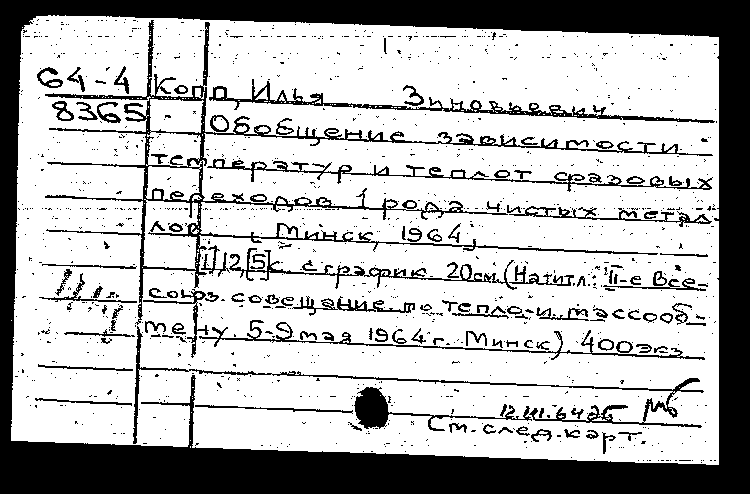 64-4 Копп, Илья Зиновьевич
8365 Обобщение зависимости
температур и теплот фазовых
переходов 1 рода чистых метал-
лов. [Минск, 1964]
[1], 12, [5] с. с график. 20см. (На тит. л.: II-е Все-
союз. совещание по тепло- и массооб-
мену. 5-9 мая 1964 г. Минск). 400 экз.
Ст. след. карт.